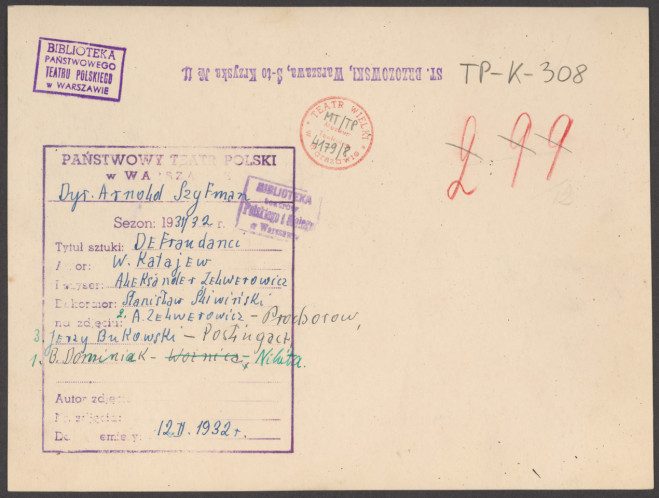 BIBLIOTEKA
PAŃSTWOWEGO
TEATRU POLSKIEGO
w WARSZAWIE
ST. BRZOZOWSKI, Warszawa, S-to Krzyska № 11.
TP-K-308
TEATR WIELKI
MT/TP
4179/8
w Warszawie
299
PAŃSTWOWY TEATR POLSKI
w WARSZAWIE
Dyr. Arnold Szyfman
BIBLIOTEKA
Teatrów
Polskiego i Małego
w Warszawie
Sezon: 1931/32 r.
Tytuł sztuki: Defraudanci
Autor: W. Katajew
Reżyser: Aleksander Zelwerowicz
Dekorator: Stanisław Śliwiński
na zdjęciu: 2. A. Zelwerowicz - Prochorow,
3. Jerzy Bukowski - Postingacz,
1. B. Dominiak - Woźnica, Nikita.
Autor zdjęć:
Nr. zdjęcia:
Data premiery: 12 II. 1932 r.